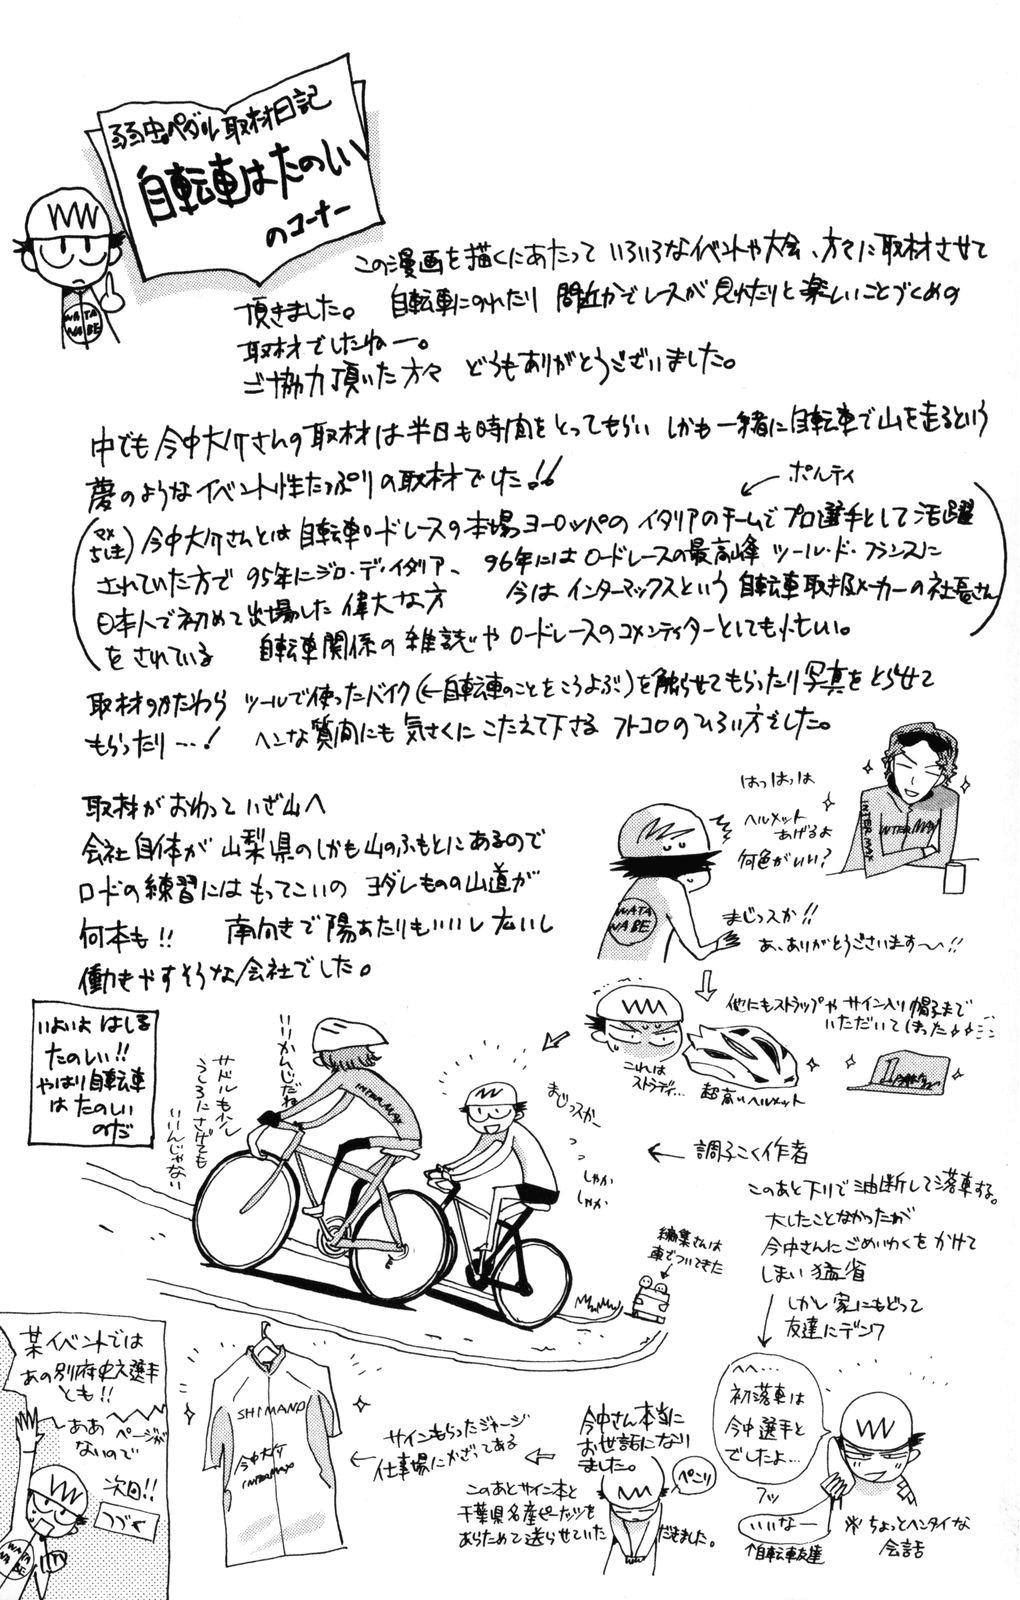 弱虫ペダル取材日記
自転車はたのしい
のコーナー
WATA
NABE
この漫画を描くにあたって いろいろなイベントや大会、方々に取材させて
頂きました。 自転車にのれたり 間近かでレースが見れたりと楽しいことづくめの
取材でしたねー。
ご協力頂いた方々 どうもありがとうございました。
中でも今中大介さんの取材は半日も時間をとってもらい しかも一緒に自転車で山を走るという
夢のようなイベント性たっぷりの取材でした!!
ポルティ
(マメちしき) 今中大介さんとは自転車ロードレースの本場ヨーロッパのイタリアのチームでプロ選手として活躍
されていた方で 95年にジロ・デ・イタリア、 96年にはロードレースの最高峰 ツール・ド・フランスに
日本人で初めて出場した偉大な方 今はインターマックスという自転車取扱メーカーの社長さん
をされている 自転車関係の雑誌やロードレースのコメンテイターとしても忙しい。
取材のかたわら ツールで使ったバイク(←自転車のことをこうよぶ)を触らせてもらったり写真をとらせて
もらったり…! ヘンな質問にも気さくにこたえて下さる フトコロのひろい方でした。
取材がおわって いざ山へ
会社自体が山梨県のしかも山のふもとにあるので
ロードの練習にはもってこいの ヨダレものの山道が
何本も!! 南向きで陽あたりもいいし広いし
働きやすそうな会社でした。
はっはっは
ヘルメット
あげるよ
何色がいい?
INTERMAX
INTERMAX
WATA
NABE
まじっスか!!
あ、ありがとうございます〜!!
他にもストラップやサイン入り帽子まで
いただいてしまった
これは
ストラディ…
超高いヘルメット
いよいよ はしる
たのしい!!
やはり自転車
はたのしい
のだ
いいかんじだね
サドルもう少し
うしろにさげても
いいんじゃない
INTERMAX
まじっスかー
しゃか
しゃか
← 調子こく作者
このあと下りで油断して落車する。
大したことなかったが
今中さんにごめいわくをかけて
しまい猛省
しかし家にもどって
友達にデンワ
編集さんは
車でついてきた
へへ…
初落車は
今中選手と
でしたよ…
フッ
いいなー
↑自転車友達
※ちょっとヘンタイな
会話
今中さん本当に
お世話になり
ました。
ぺこり
このあとサイン本と
千葉県名産ピーナッツを
あらためて送らせていただきました。
サインもらったジャージ
仕事場にかざってある
SHIMANO
今中大介
INTERMAX
某イベントでは
あの別府史之選手
とも!!
ああ ページが
ないので
次回!!
つづく
WATA
NABE